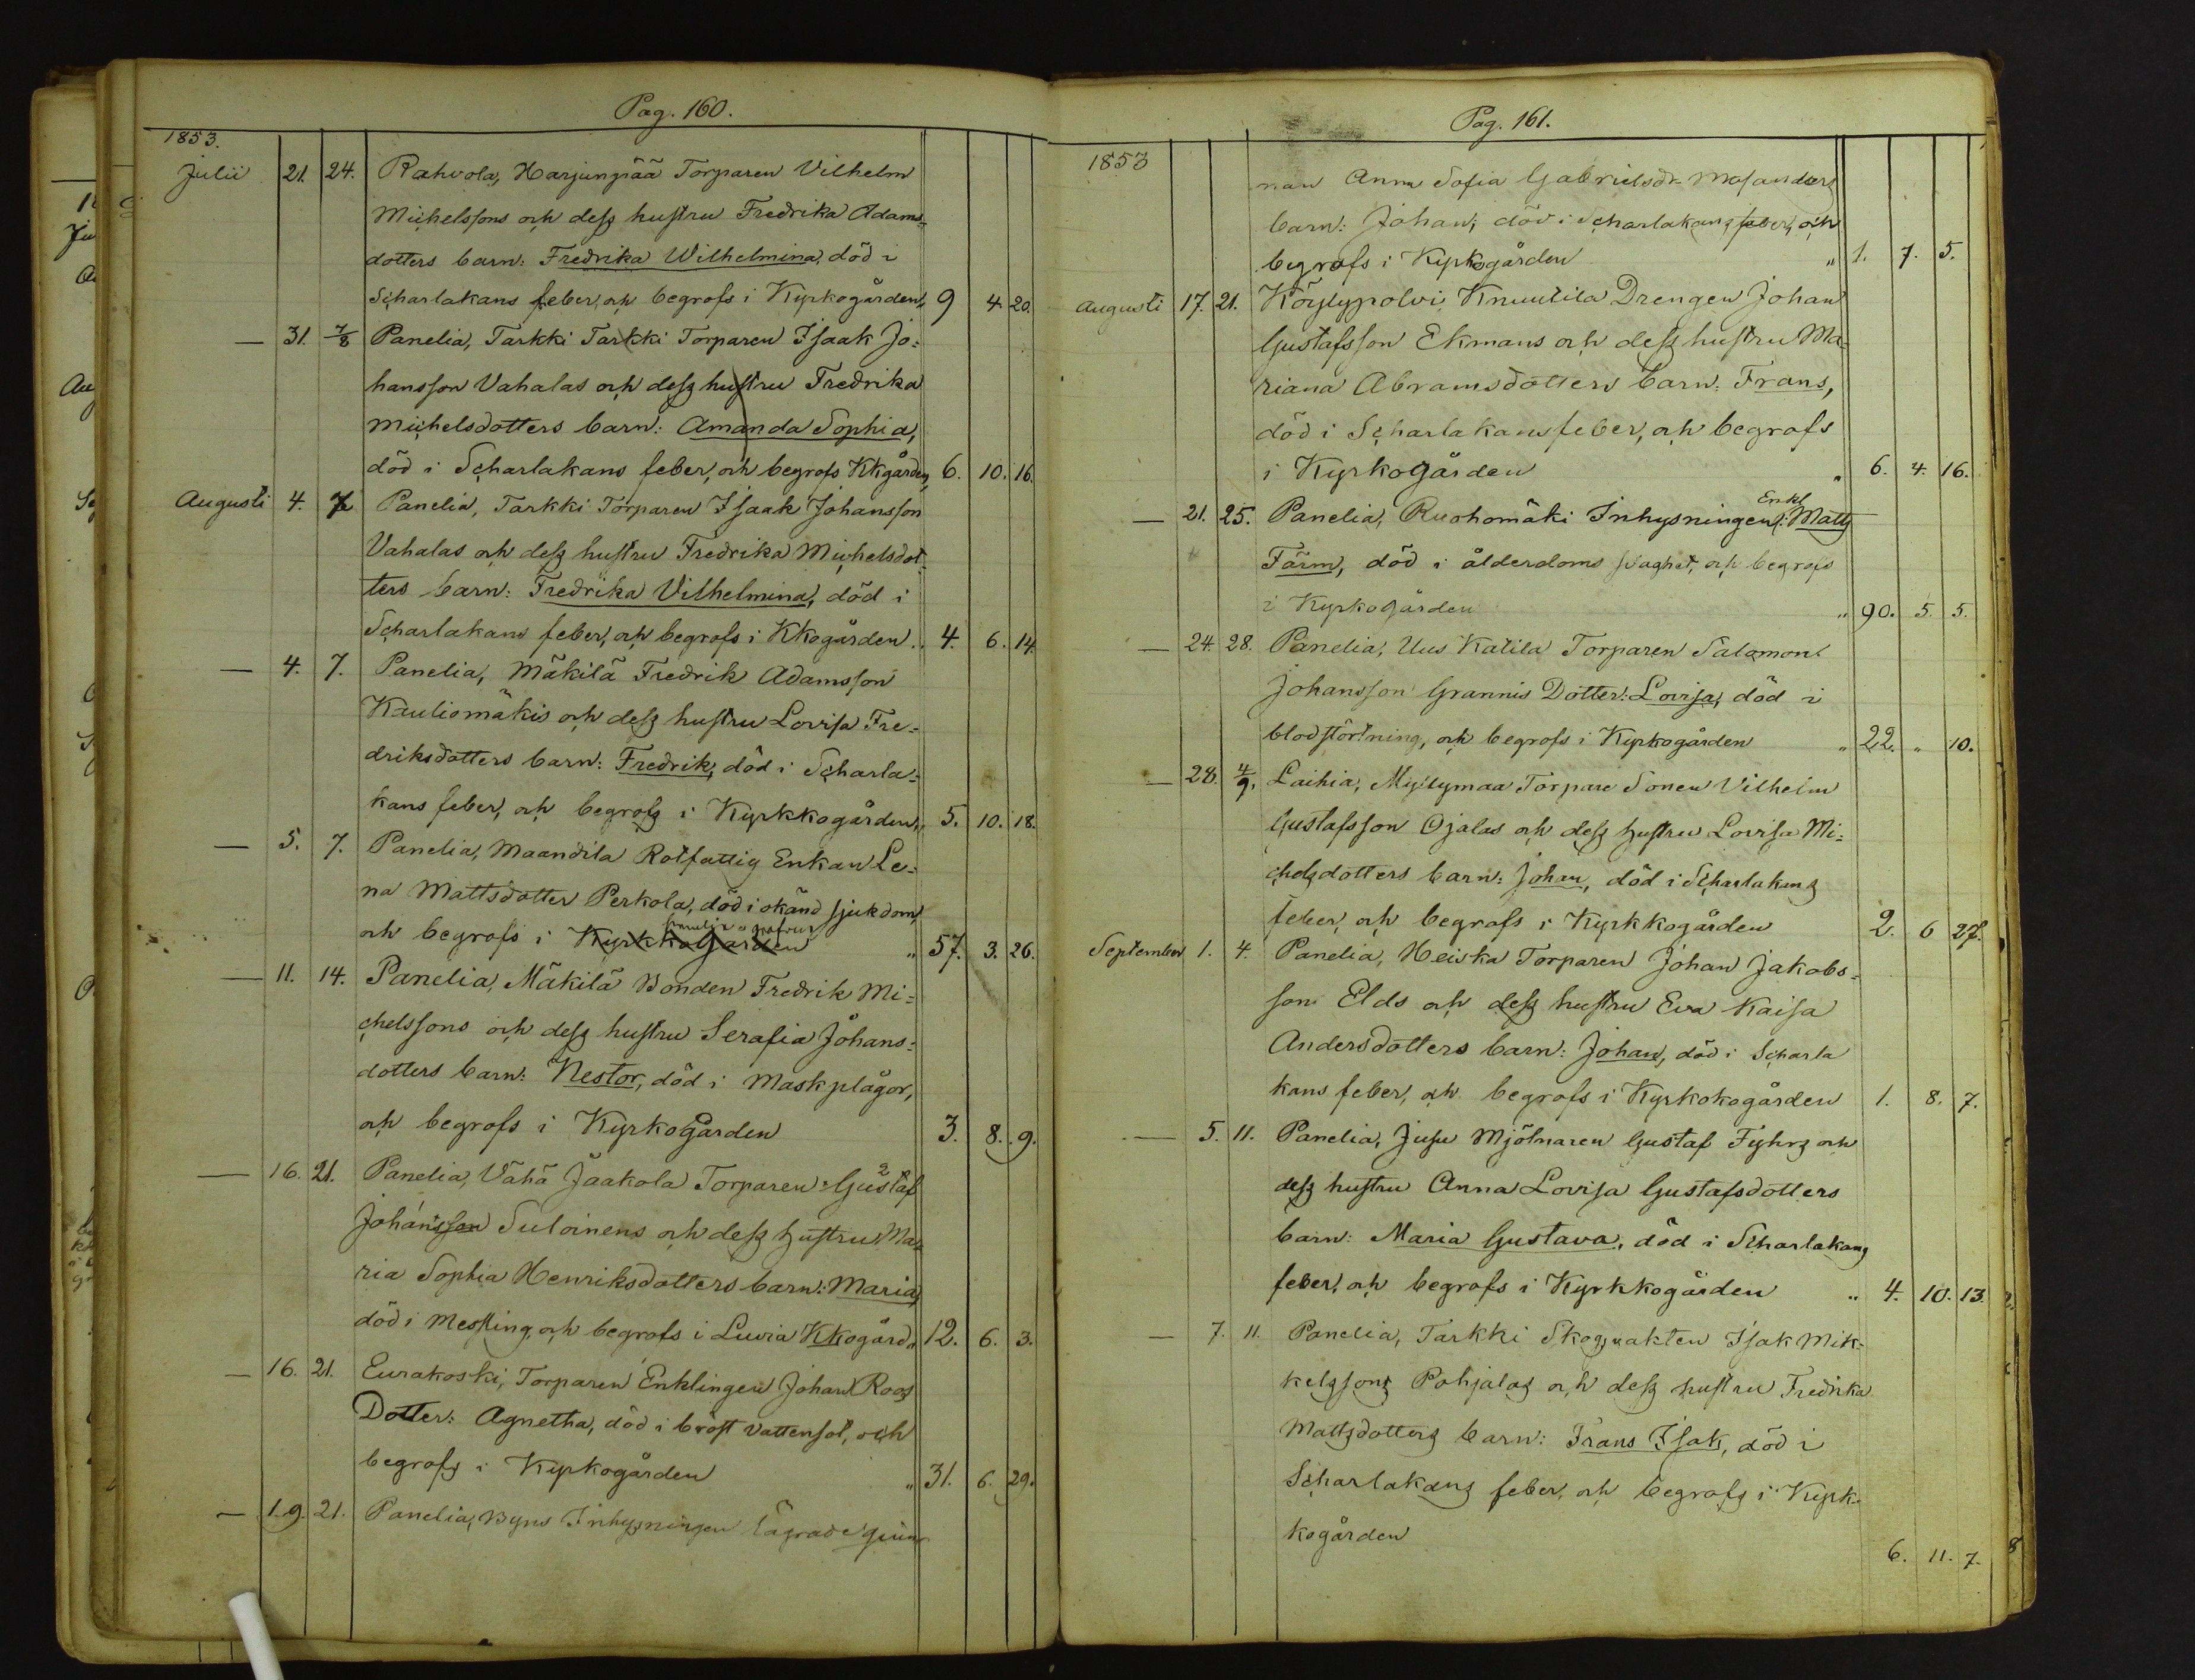 Pag. 160.
1853.
Julii 21. 24. Rahvola, Harjunpää Torparen Vilhelm
Michelssons och dess hustru Fredrika Adams-
dotters barn: Fredrika Wilhelmina, död i
Scharlakans feber, och begrofs i Kyrkogården, 9 4. 20.
— 31. 7/8 Panelia, Tarkki Tarkki Torparen Isaak Jo-
hansson Vahalas och dess hustru Fredrika
Michelsdotters barn: Amanda Sophia,
död i Scharlakans feber, och begrofs Kkgården, 6. 10. 16.
Augusti 4. 7. Panelia, Tarkki Torparen Isaak Johansson
Vahalas och dess hustru Fredrika Michelsdot-
ters barn: Fredrika Vilhelmina, död i
Scharlakans feber, och begrofs i Kkogården. 4. 6. 14.
— 4. 7. Panelia, Mäkilä Fredrik Adamsson
Kauliomäkis och dess hustru Lovisa Fre-
driksdotters barn: Fredrik, död i Scharla-
kans feber, och begrofs i Kyrkkogården,, 5. 10. 18.
— 5. 7. Panelia, Maandila Rotfattig Enkan Le-
na Mattsdotter Perkola, död i okänd sjukdom,
och begrofs i Kyrkkogården „ 57. 3. 26.
— 11. 14. Panelia, Mäkilä Bonden Fredrik Mi-
chelssons och dess hustru Serafia Johans-
dotters barn: Nestor, död i Maskplågor,
och begrofs i Kyrkogården 3. 8. 9.
— 16. 21. Panelia, Vähä Jaakola Torparen Gustaf
Johansson Suloinens och dess hustru Ma-
ria Sophia Henriksdotters barn: Maria,
död i Messling, och begrofs i Luvia Kkogård „ 12. 6. 3.
— 16. 21. Eurakoski, Torparen Enklingen Johan Roos
Dotter: Agnetha, död i bröst vattensot, och
begrofs i Kyrkogården „ 31. 6. 29.
— 19. 21. Panelia, Byns Inhysningen
Pag. 161.
1853
nan Anna Sofia Gabrielsdr Masanders
barn: Johan, död i Scharlakans feber, och
begrofs i Kyrkogården „ 1. 7. 5.
Augusti 17. 21. Köylypolvi Knuutila Drengen Johan
Gustafsson Ekmans och dess hustru Ma-
riana Abramsdotters barn: Frans,
död i Scharlakansfeber, och begrofs
i Kyrkogården „ 6. 4. 16.
Enkl
— 21. 25. Panelia, Ruohomäki Inhysningen: Matts
Färm, död i ålderdoms svaghet, och begrofs
i Kyrkogården „ 90. 5. 5.
— 24. 28. Panelia, Uus Katila Torparen Salomon
Johansson Grannis Dotter: Lovisa, död i
blodstörtning, och begrofs i Kyrkogården „ 22. „ 10.
— 28. 4/9. Laihia, Myllymaa Torpare Sonen Vilhelm
Gustafsson Ojalas och dess hustru Lovisa Mi-
chelsdotters barn: Johan, död i Scharlakans
feber, och begrofs i Kyrkkogården 2. 6 27.
September 1. 4. Panelia, Heiska Torparen Johan Jakobs-
son Elds och dess hustru Eva Kaisa
Andersdotters barn: Johan, död i Scharla
kans feber, och begrofs i Kyrkokogården 1. 8. 7.
— 5. 11. Panelia, Jusu Mjölnaren Gustaf Fyhrs och
dess hustru Anna Lovisa Gustafsdotters
barn: Maria Gustava, död i Scharlakans
feber, och begrofs i Kyrkkogården „ 4. 10. 13.
— 7. 11. Panelia, Tarkki Skogvakten Isak Mik-
kelssons Pohjalas och dess hustru Fredrika
Mattsdotters barn: Frans Isak, död i
Scharlakans feber, och begrofs i Kyrk-
kogården 6. 11. 7.